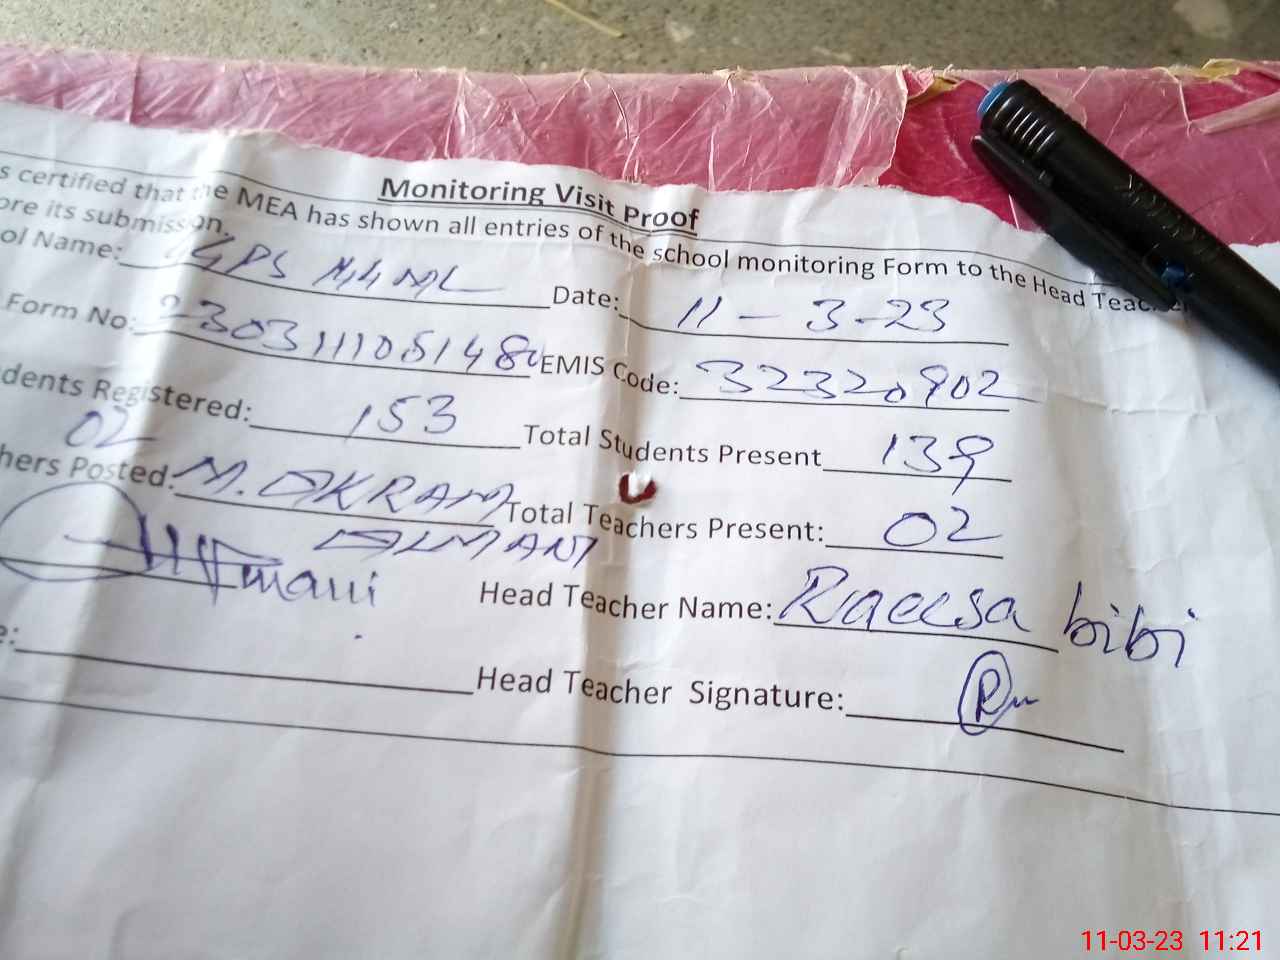 Monitoring Visit Proof
s certified that the MEA has shown all entries of the school monitoring Form to the Head Teacher
ore its submission.
ol Name: GPS Date: 11-3-23
Form No: EMIS Code: 32320902
dents Registered: 153 Total Students Present 139
02
hers Posted: M. AKRAM Total Teachers Present: 02
Head Teacher Name: Raeesa bibi
e: Head Teacher Signature:
11-03-23 11:21